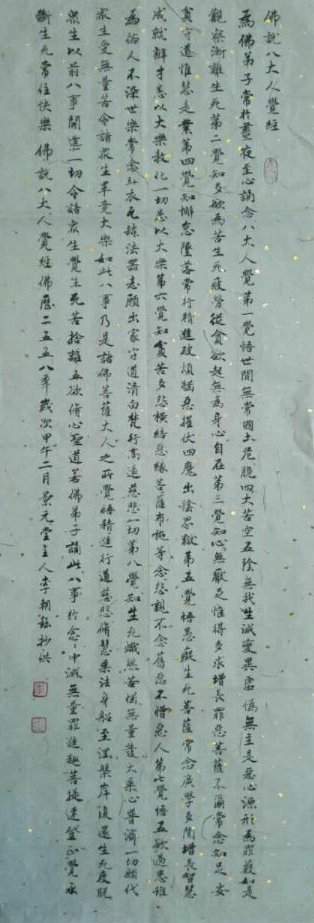 佛說八大人覺經
為佛弟子常於晝夜至心誦念八大人覺第一覺悟世間無常國土危脆四大苦空五陰無我生滅變異虛偽無主是惡心源形為罪藪如是
觀察漸離生死第二覺知多欲為苦生死疲勞從貪欲起無為身心自在第三覺知心無厭足惟得多求增長罪惡菩薩不爾常念知足安
貧守道惟慧是業第四覺知懈怠墜落常行精進破煩惱惡摧伏四魔出陰界獄第五覺悟愚癡生死菩薩常念廣學多聞增長智慧
成就辯才悉以大樂教化一切悉以大樂第六覺知貧苦多怨橫結惡緣菩薩布施等念怨親不念舊惡不憎惡人第七覺悟五欲過患雖
為俗人不染世樂常念三衣瓦鉢法器志願出家守道清白梵行高遠慈悲一切第八覺知生死熾然苦惱無量發大乘心普濟一切願代
眾生受無量苦令諸眾生畢竟大樂如此八事乃是諸佛菩薩大人之所覺悟精進行道慈悲脩慧乘法身船至涅槃岸復還生死度脫
眾生以前八事開導一切令諸眾生覺生死苦捨離五欲脩心聖道若佛弟子誦此八事於念念中滅無量罪進趣菩提速登正覺永
斷生死常住快樂 佛說八大人覺經佛曆二五五八年歲次甲午二月景元堂主人李朝